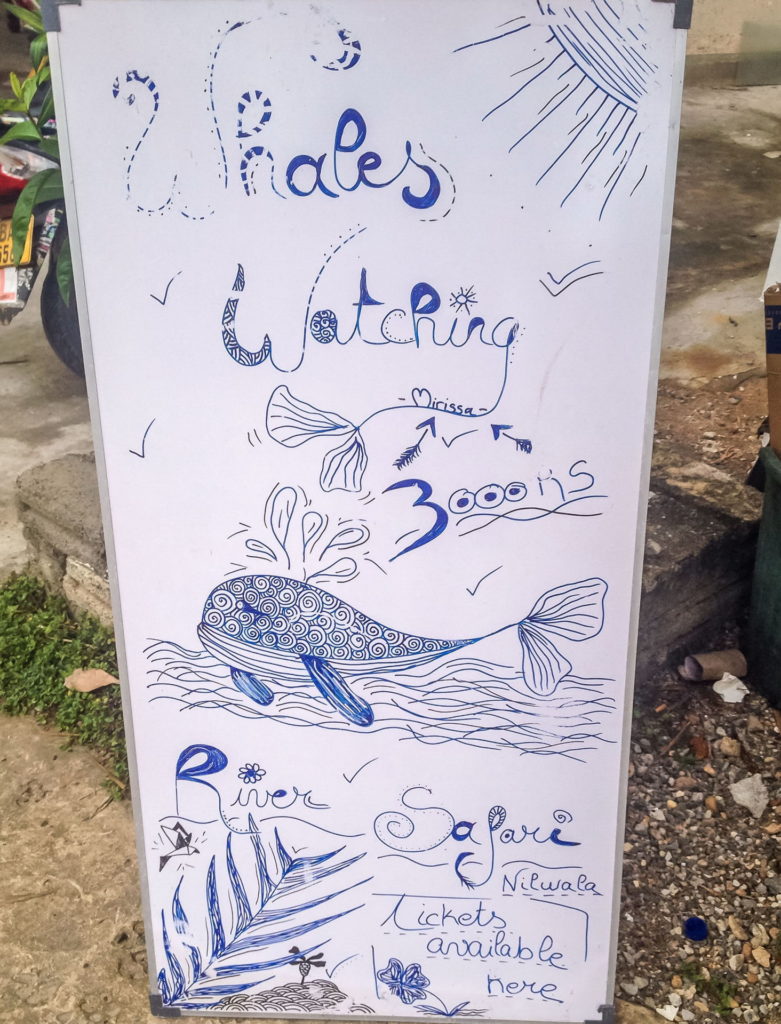 Whales
Watching
- Mirissa -
3000 RS
River
Safari
Nilwala
Tickets
available
here